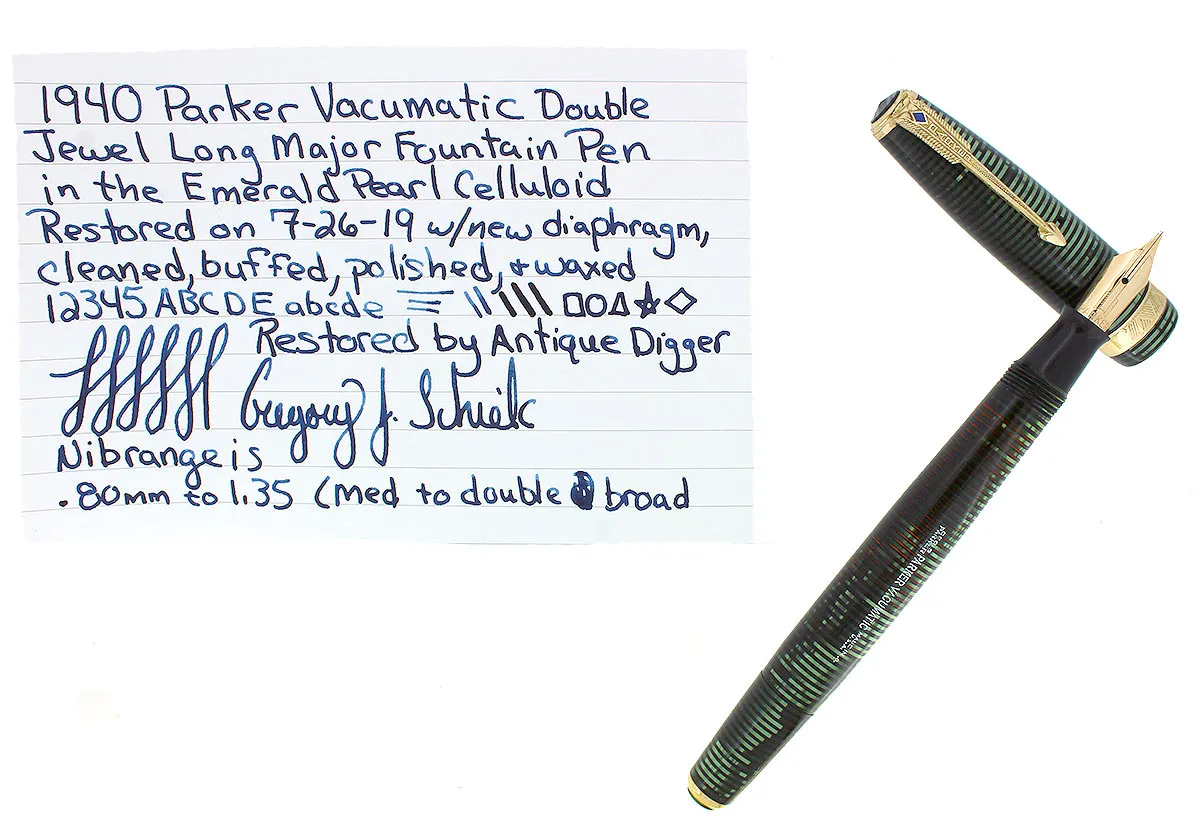 1940 Parker Vacumatic Double
Jewel Long Major Fountain Pen
in the Emerald Pearl Celluloid
Restored on 7-26-19 w/new diaphragm,
cleaned, buffed, polished, + waxed
12345 ABCDE abcde
Restored by Antique Digger
Gregory J. Schiek
Nib range is
.80mm to 1.35 (med to double broad
PARKER
PARKER VACUMATIC
MADE IN U.S.A.